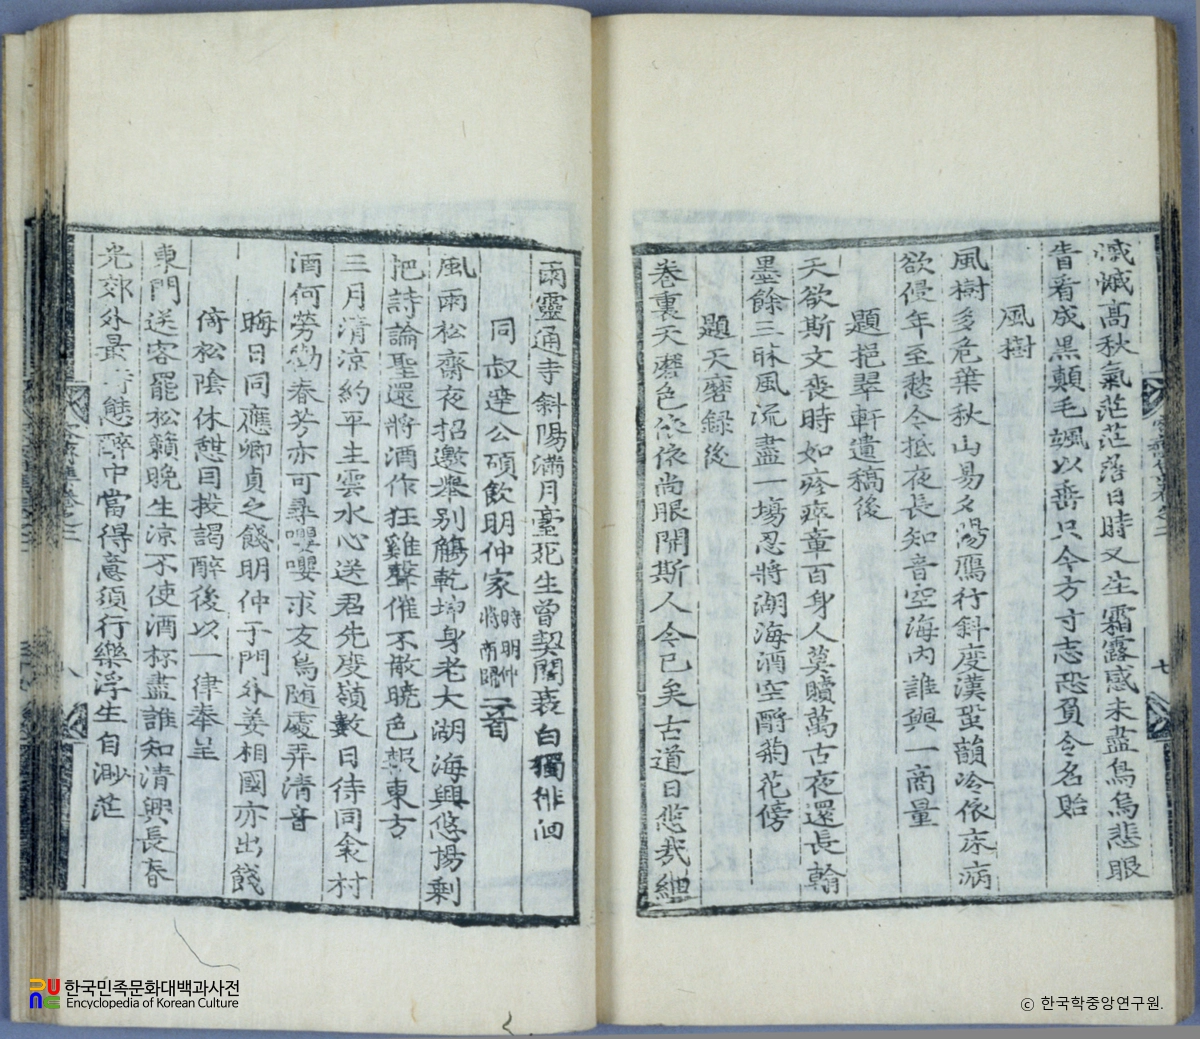 慽慽高秋氣茫茫落日時又生霜露感未盡鳥烏悲眼
眚看成黑顛毛颯以垂只今方寸志恐負令名貽
風樹
風樹多危葉秋山易夕陽鴈行斜度漢蛩韻冷依床病
欲侵年至愁令抵夜長知音空海內誰與一商量
題挹翠軒遺稿後
天欲斯文喪時如疹瘼章百身人莫贖萬古夜還長翰
墨餘三昧風流盡一場忍將湖海酒空酹菊花傍
題天磨録後
卷裏天磨色依依尚眼開斯人今已矣古道日悠哉細
雨靈通寺斜陽滿月臺死生曾契闊衰白獨徘徊
同叔達公碩飮明仲家時明仲將南歸二首
風雨松齋夜招邀舉别觴乾坤身老大湖海興悠揚剩
把詩論聖還將酒作狂雞聲催不散曉色報東方
三月清涼約平生雲水心送君先度嶺數日待同衾村
酒何勞勸春芳亦可尋嚶嚶求友鳥随處弄清音
晦日同應卿貞之餞明仲于門外姜相國亦出餞
倚松陰休憩目投謁醉後以一律奉呈
東門送客罷松籟晩生涼不使酒杯盡誰知清興長春
光郊外最時態醉中當得意須行樂浮生自渺茫
七
八
한국민족문화대백과사전
Encyclopedia of Korean Culture
ⓒ 한국학중앙연구원.